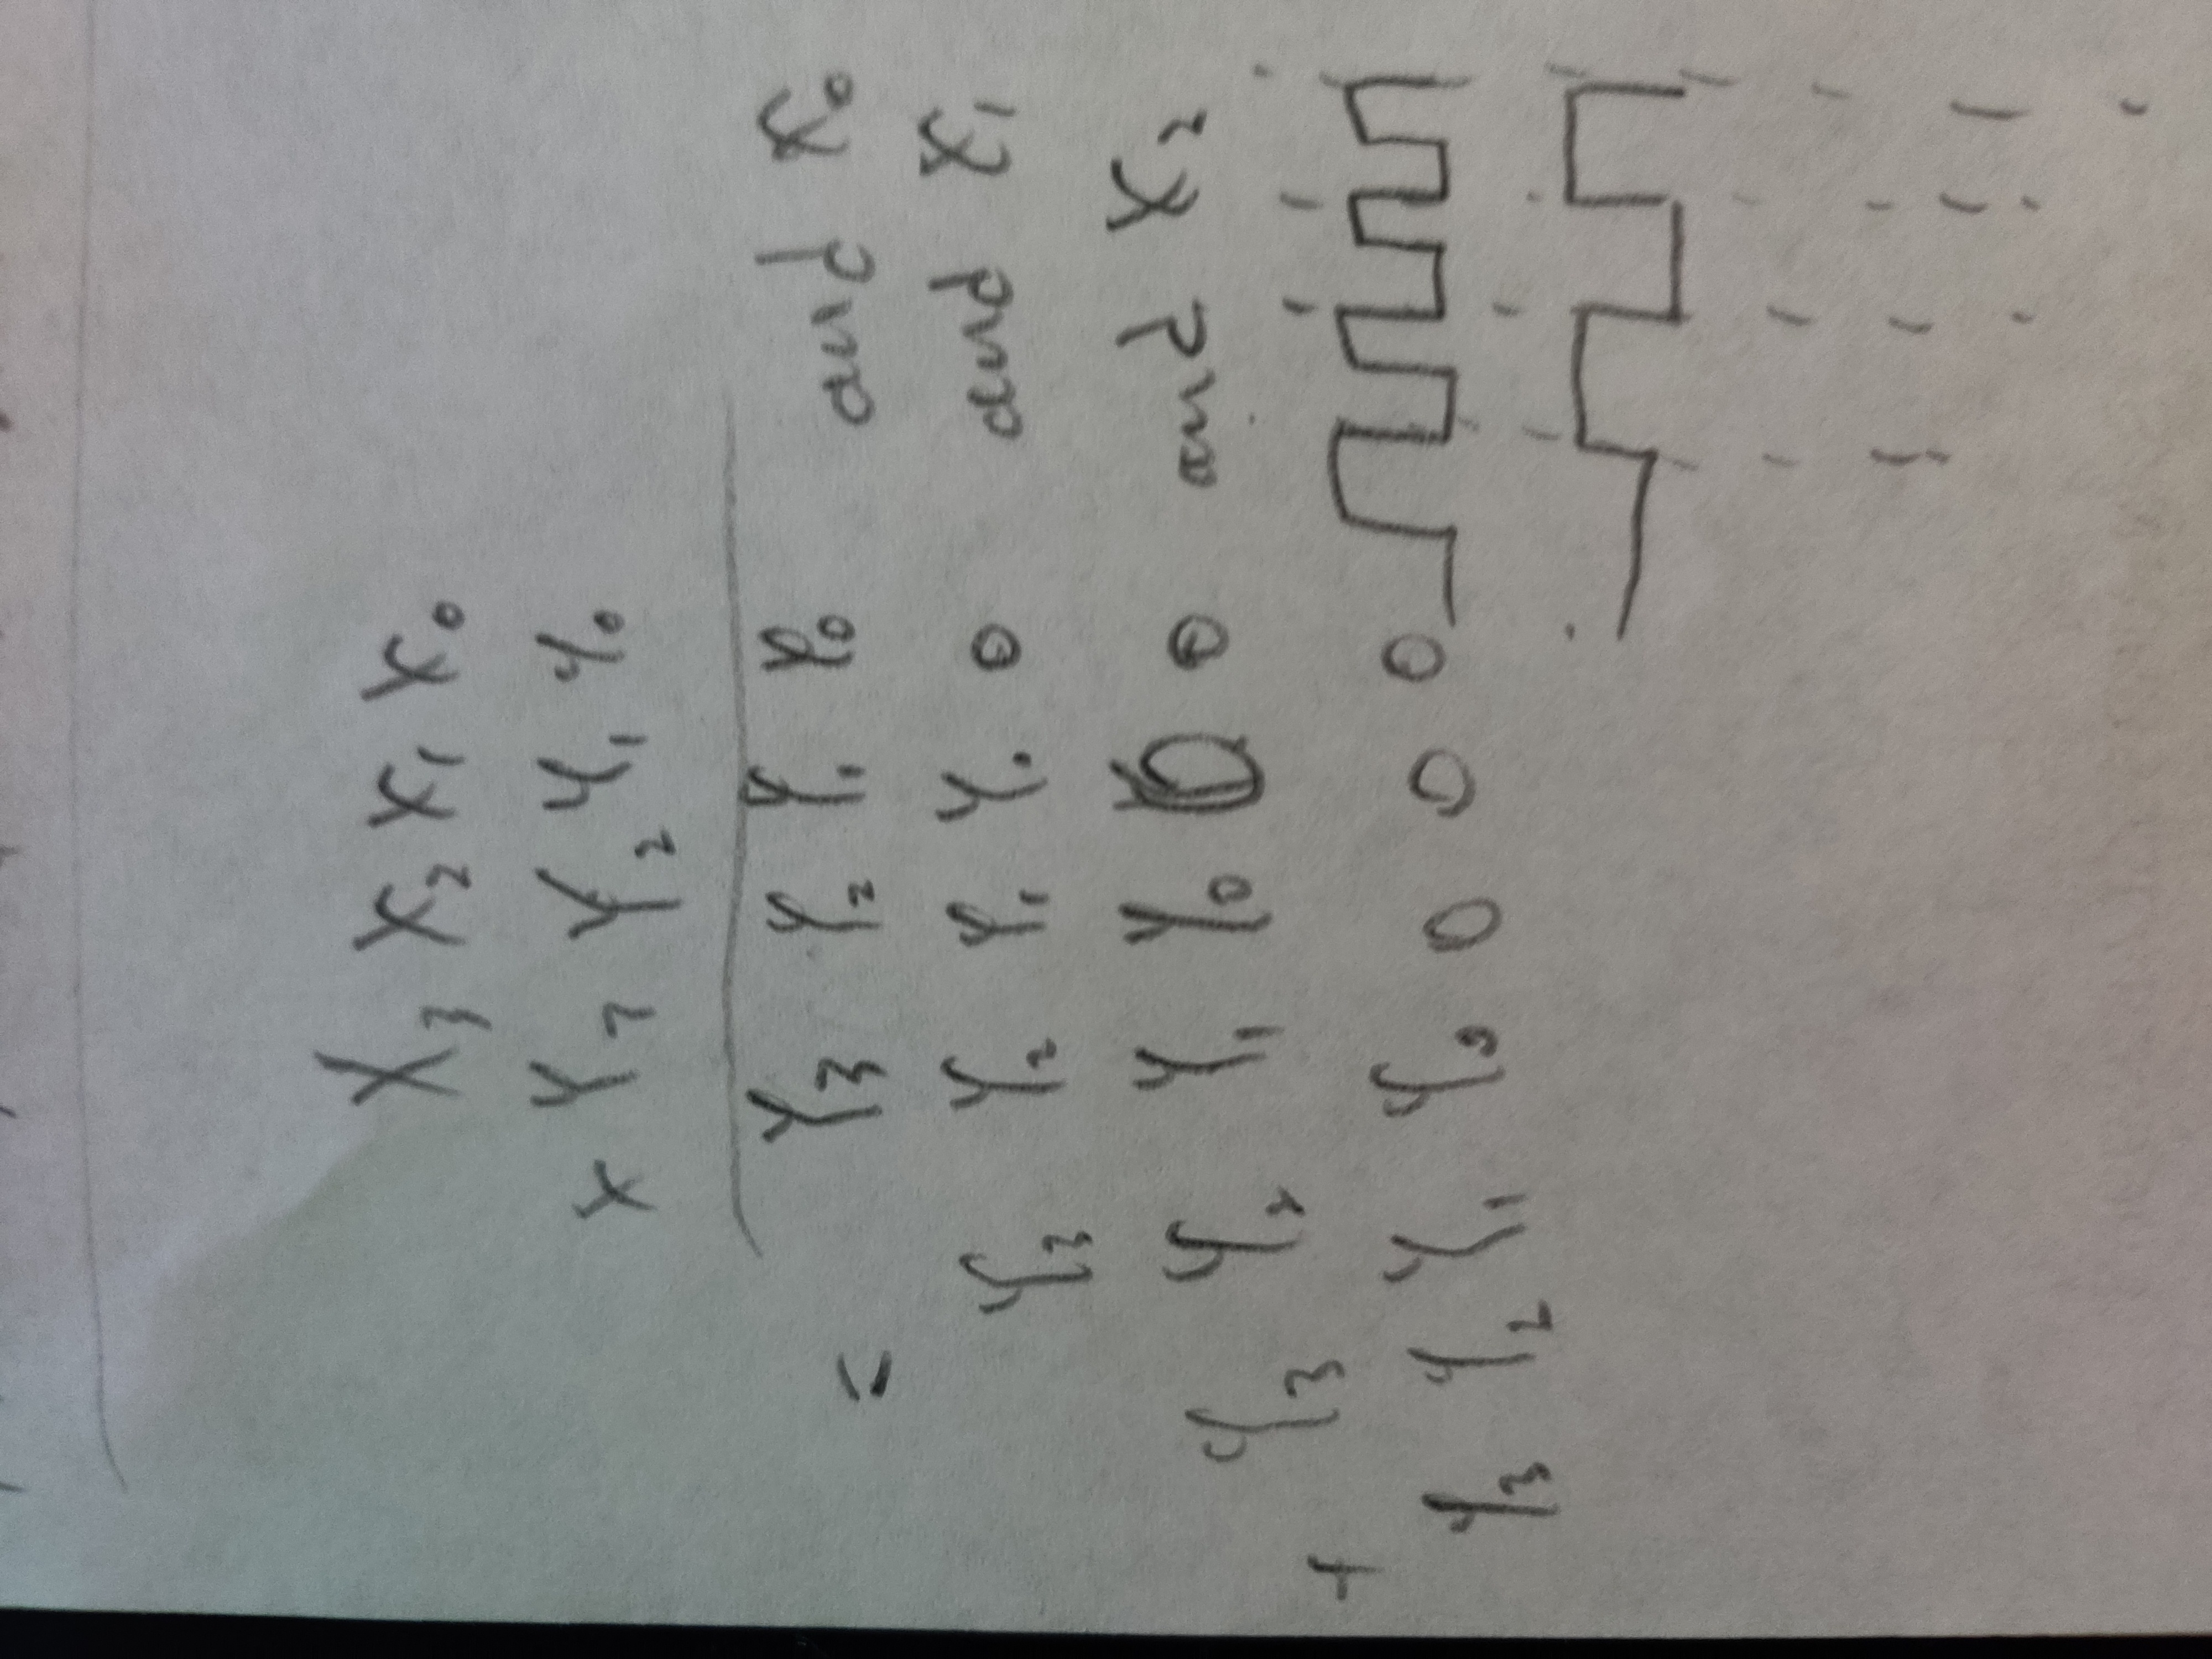 X₃ X₂ X₁ X₀
x Y₃ Y₂ Y₁ Y₀
= Y₃ Y₂ Y₁ Y₀ and X₀
Y₃ Y₂ Y₁ Y₀ 0 and X₁
Y₃ Y₂ Y₁ Y₀ 0 0 and X₂
+
Y₃ Y₂ Y₁ Y₀ 0 0 0